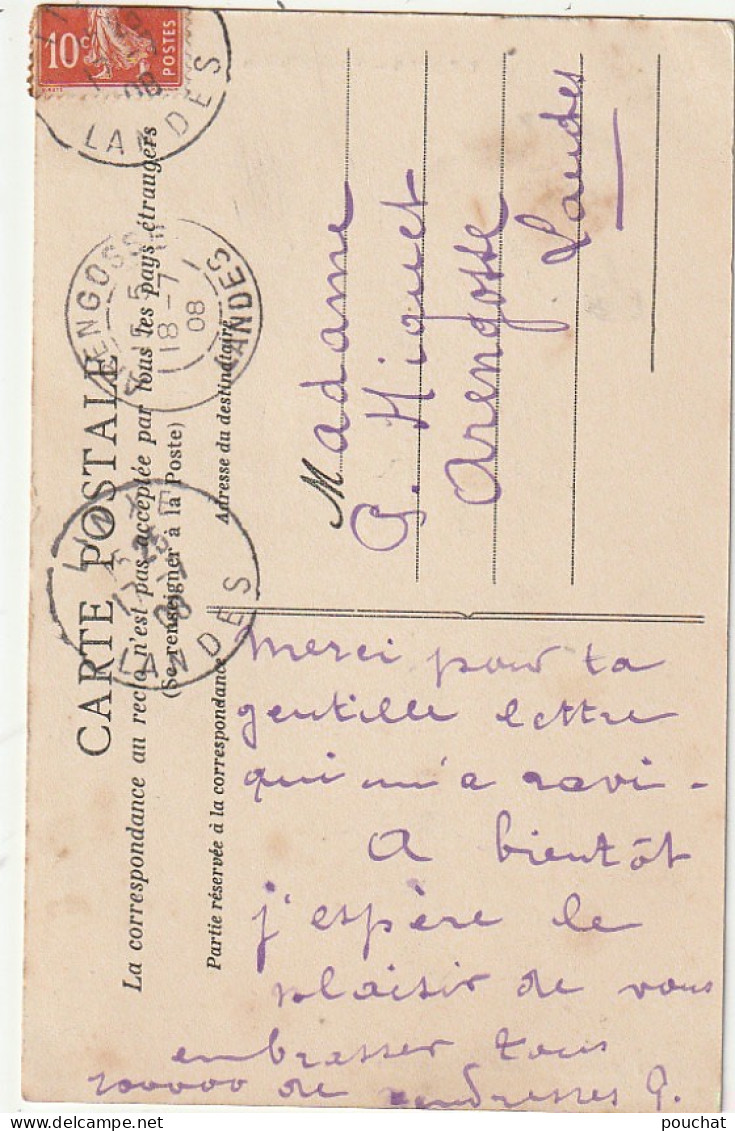 10c
POSTES
LANDES
CARTE POSTALE
La correspondance au recto n'est pas acceptée par tous les pays étrangers
(Se renseigner à la Poste)
Partie réservée à la correspondance
Adresse du destinataire
ARENGOSSE
5
18-7
08
LANDES
LANDES
Madame
G. Hiquet
Arengosse
Landes
Merci pour ta
gentille lettre
qui m'a ravi -
A bientôt
j'espère le
plaisir de vous
embrasser tous
100000 de tendresses G.
pouchat